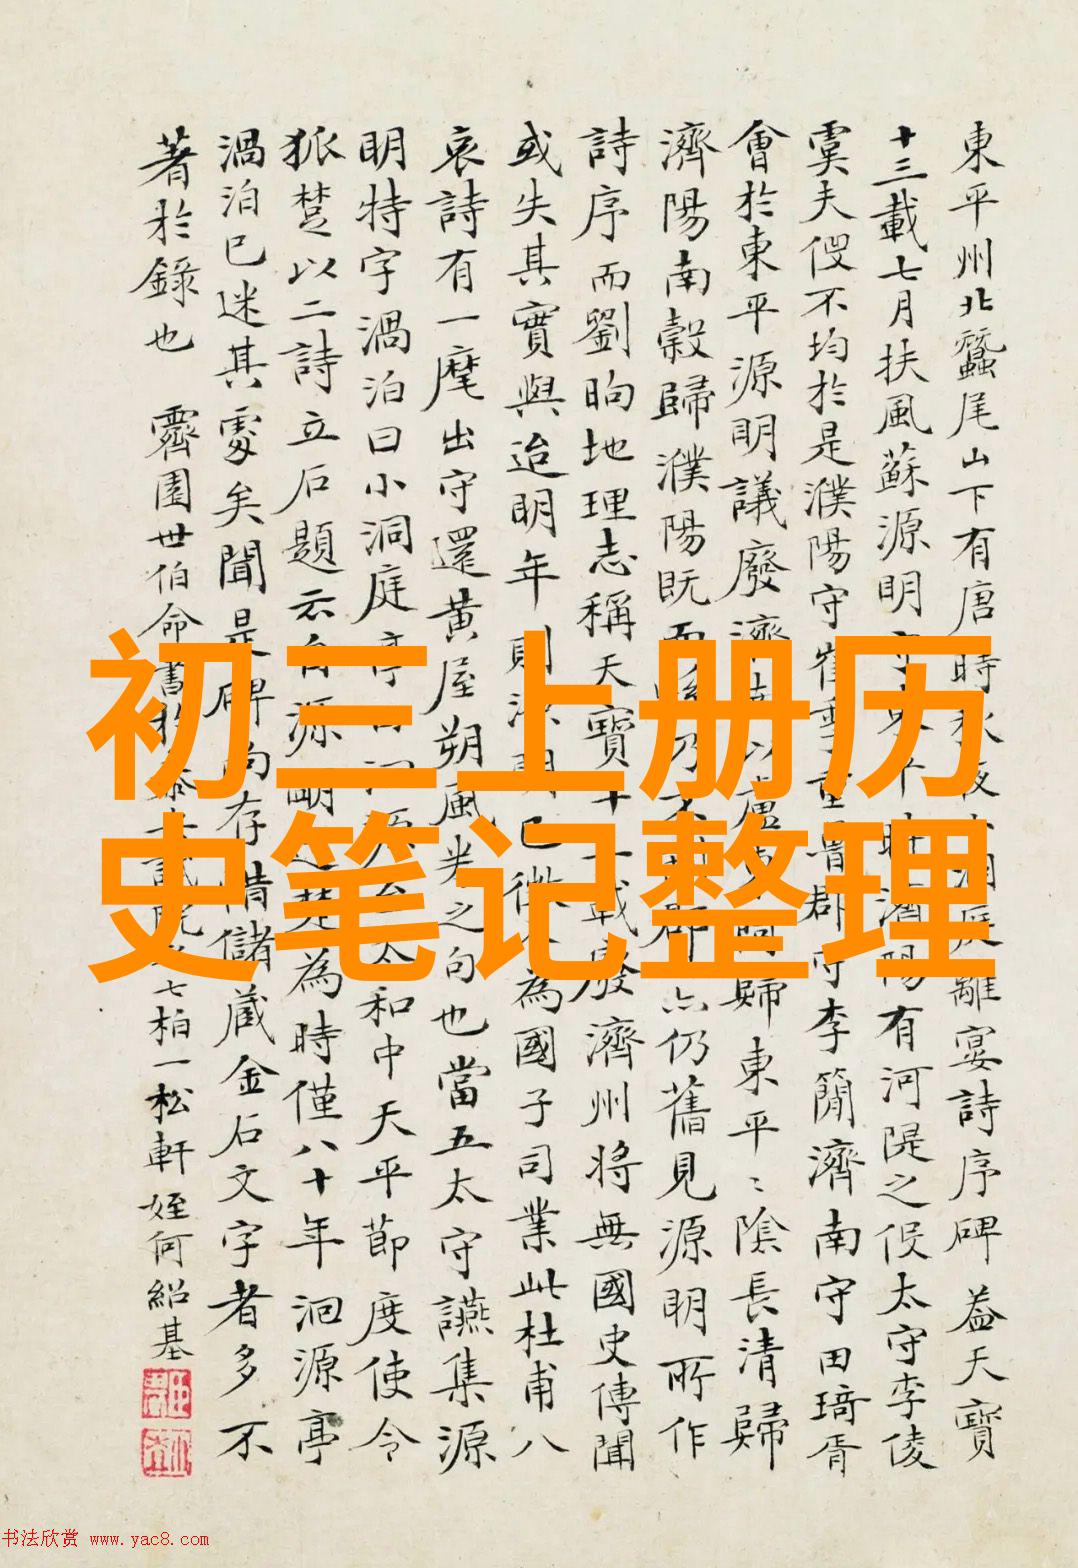 東平州北蠶尾山下有唐時
離宴詩序碑蓋天寶
十三載七月扶風蘇源明
濟陽有河隄之役太守李倰
虞夫役不均於是濮陽守崔
郡守李簡濟南守田琦胥
會於東平源明議廢濟
歸東平二陰長清歸
濟陽南穀歸濮陽既而
仍舊見源明所作
詩序而劉昫地理志稱天寶十
載廢濟州將無國史傳聞
或失其實與迨明年則源明已徵
為國子司業此杜甫八
哀詩有一麾出守還黄屋朔風
之句也當五太守讌集源
明特字渦泊曰小洞庭亭
太和中天平節度使令
狐楚以二詩立石題云自源明
為時僅八十年洄源亭
渦泊已迷其處矣聞是碑
存惜儲藏金石文字者多不
著於錄也 霽園世伯命書
七柏一松軒姪何紹基
初三上册历
史笔记整理
书法欣赏 www.yac8.com